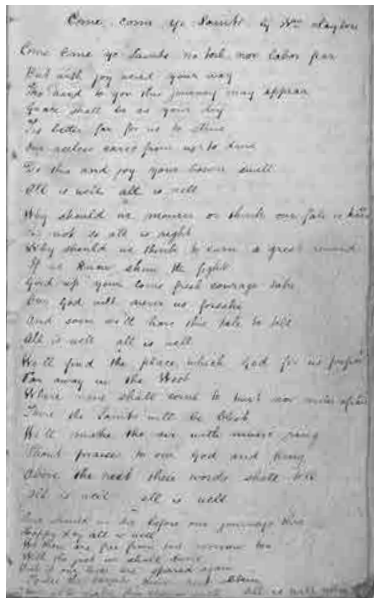 Come come ye Saints by Wm Clayton
Come Come ye Saints no toil nor labor fear
But with joy wend your way
Tho hard to you this journey may appear
Grace shall be as your day
Tis better far for us to strive
Our useless cares from us to drive
Do this and joy your bosoms swell
All is well all is well
Why should we mourn or think our lot is hard
Tis not so all is right
Why should we think to earn a great reward
If we now shun the fight
Gird up your loins fresh courage take
Our God will never us forsake
And soon we'll have this tale to tell
All is well all is well
We'll find the place which God for us prepared
Far away in the West
Where none shall come to hurt nor make afraid
There the Saints will be blest
We'll make the air with music ring
Shout praise to our God and King
Above the rest these words shall tell
All is well all is well
And should we die before our journeys thro
Happy day all is well
We then are free from toil and sorrow too
With the just we shall dwell
But if our lives are spared again
To see the Saints
All is well